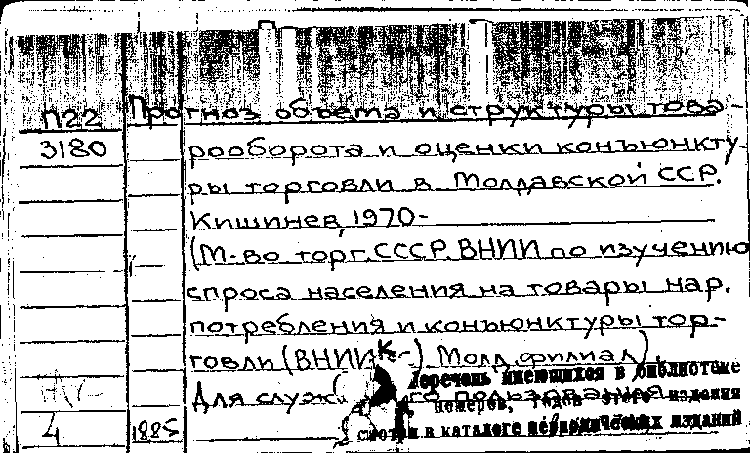 П22 Прогноз объема и структуры това-
3180 рооборота и оценки конъюнкту-
ры торговли в Молдавской ССР.
Кишинев, 1970-
(М-во торг. СССР. ВНИИ по изучению
спроса населения на товары нар.
потребления и конъюнктуры тор-
говли (ВНИИК-). Молд. филиал).
Для служ. пользования
Перечень имеющихся в библиотеке
номеров, годов этого издания
смотри в каталоге периодических изданий
4